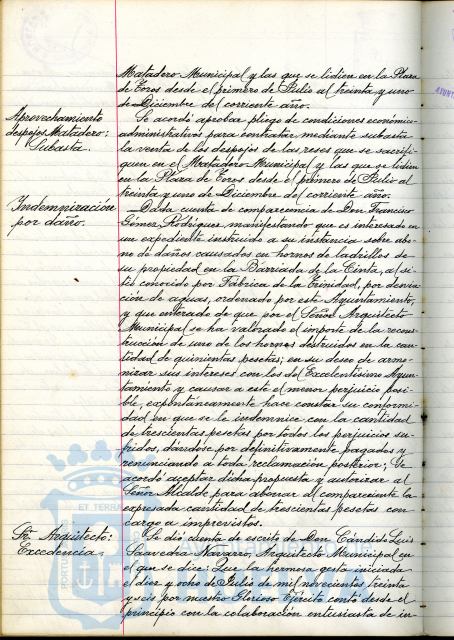 Matadero Municipal y las que se lidien en la Plaza
de Toros desde el primero de Julio al treinta y uno
de Diciembre del corriente año.
Aprovechamiento
despojos Matadero:
Subasta.
Se acordó aprobar pliego de condiciones económico-
administrativo para contratar mediante subasta
la venta de los despojos de las reses que se sacrifi-
quen en el Matadero Municipal y las que se lidien
en la Plaza de Toros desde el primero de Julio al
treinta y uno de Diciembre del corriente año.
Indemnización
por daño.
Dada cuenta de comparecencia de Don Francisco
Gómez Rodríguez manifestando que es interesado en
un expediente instruido a su instancia sobre abo-
no de daños causados en hornos de ladrillos de
su propiedad en la Barriada de la Cinta, al si-
tio conocido por Fábrica de la Trinidad, por desvia-
ción de aguas, ordenado por este Ayuntamiento,
y que enterado de que por el Señor Arquitecto
Municipal se ha valorado el importe de la recons-
trucción de uno de los hornos destruidos en la can-
tidad de quinientas pesetas; en su deseo de armo-
nizar sus intereses con los del Excelentísimo Ayun-
tamiento y causar a este el menor perjuicio posi-
ble, expontáneamente hace constar su conformi-
dad en que se le indemnice con la cantidad
de trescientas pesetas por todos los perjuicios su-
fridos, dándose por definitivamente pagados y
renunciando a toda reclamación posterior; Se
acordó aceptar dicha propuesta y autorizar al
Señor Alcalde para abonar al compareciente la
expresada cantidad de trescientas pesetas con
cargo a imprevistos.
Sr. Arquitecto:
Excedencia.
Se dió cuenta de escrito de Don Cándido Luis
Saavedra Navarro, Arquitecto Municipal en
el que se dice: Que la hermosa gesta iniciada
el diez y ocho de Julio de mil novecientos treinta
y seis por nuestro Glorioso Ejército contó desde el
principio con la colaboración entusiasta de in-